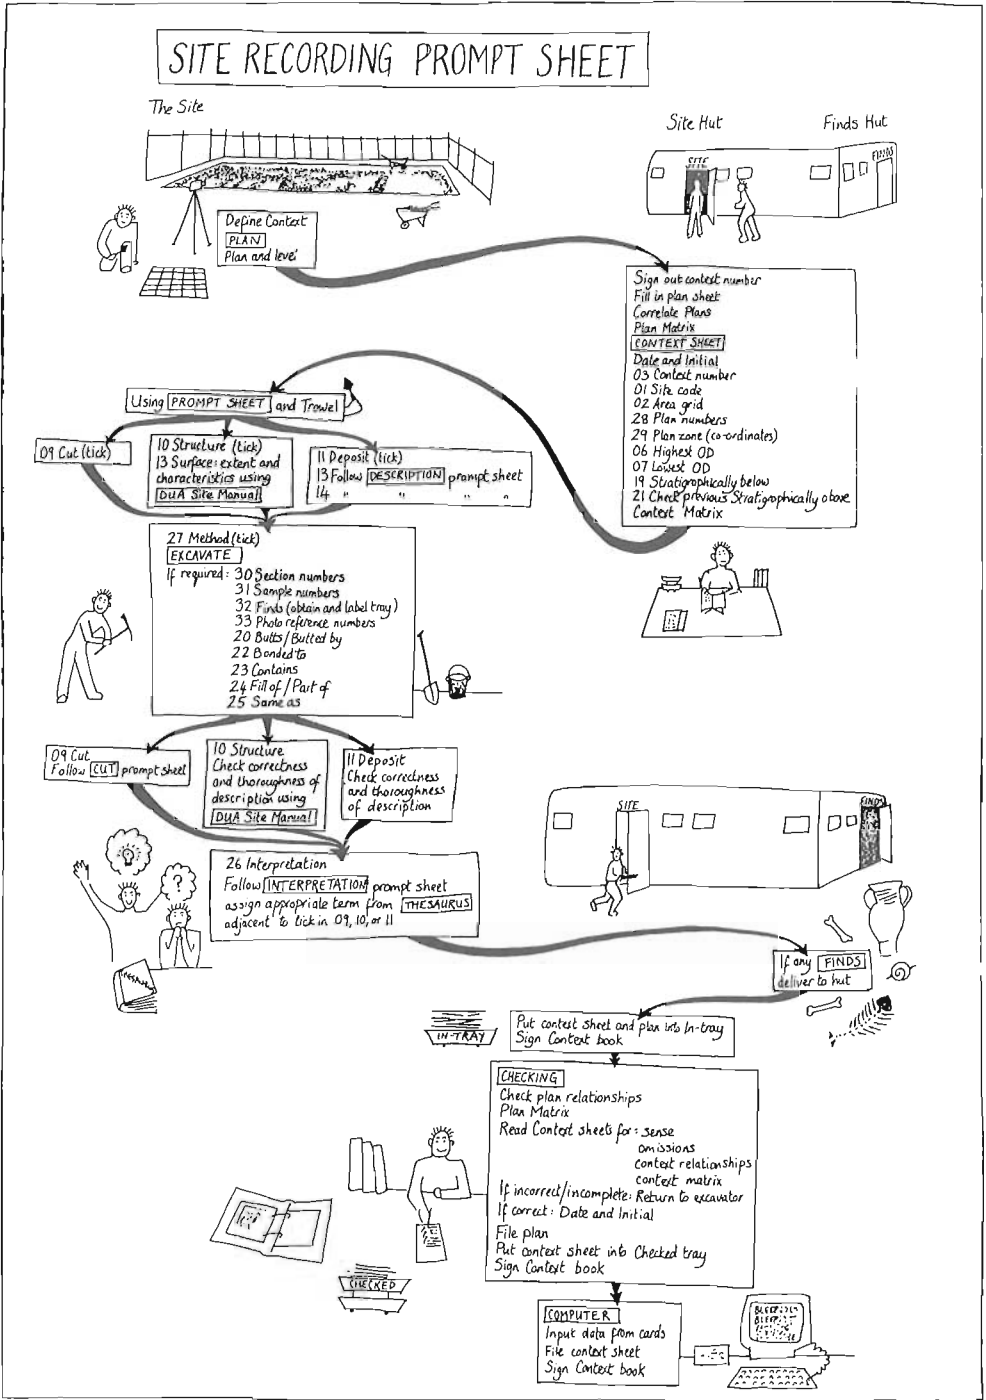 SITE RECORDING PROMPT SHEET
The Site
Site Hut
Finds Hut
SITE
FINDS
Define Context
PLAN
Plan and level
Sign out context number
Fill in plan sheet
Correlate Plans
Plan Matrix
CONTEXT SHEET
Date and Initial
03 Context number
01 Site code
02 Area grid
28 Plan numbers
29 Plan zone (co-ordinates)
06 Highest OD
07 Lowest OD
19 Stratigraphically below
21 Check previous Stratigraphically above
Context Matrix
Using PROMPT SHEET and Trowel
09 Cut (tick)
10 Structure (tick)
13 Surface: extent and
characteristics using
DUA Site Manual
11 Deposit (tick)
13 Follow DESCRIPTION prompt sheet
14 " " " "
27 Method (tick)
EXCAVATE
If required: 30 Section numbers
31 Sample numbers
32 Finds (obtain and label tray)
33 Photo reference numbers
20 Butts / Butted by
22 Bonded to
23 Contains
24 Fill of / Part of
25 Same as
09 Cut
Follow CUT prompt sheet
10 Structure
Check correctness
and thoroughness of
description using
DUA Site Manual
11 Deposit
Check correctness
and thoroughness
of description
SITE
FINDS
?
26 Interpretation
Follow INTERPRETATION prompt sheet
assign appropriate term from THESAURUS
adjacent to tick in 09, 10, or 11
If any FINDS
deliver to hut
IN-TRAY
Put context sheet and plan into In-tray
Sign Context book
CHECKING
Check plan relationships
Plan Matrix
Read Context sheets for: sense
omissions
context relationships
context matrix
If incorrect/incomplete: Return to excavator
If correct: Date and Initial
File plan
Put context sheet into Checked tray
Sign Context book
CHECKED
COMPUTER
Input data from cards
File context sheet
Sign Context book